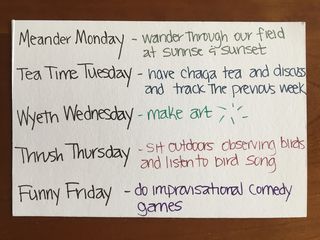 Meander Monday - wander through our field
at sunrise & sunset
Tea Time Tuesday - have chaga tea and discuss
and track the previous week
Wyeth Wednesday - make art
Thrush Thursday - sit outdoors observing birds
and listen to bird song
Funny Friday - do improvisational comedy
games